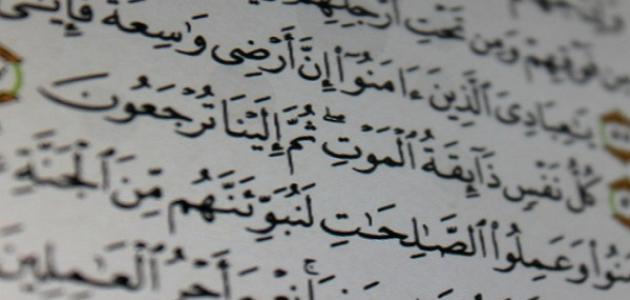 فَوْقِهِمْ وَمِن تَحْتِ أَرْجُلِهِمْ
يَـٰعِبَادِىَ ٱلَّذِينَ ءَامَنُوٓا۟ إِنَّ أَرْضِى وَٰسِعَةٌ
كُلُّ نَفْسٍ ذَآئِقَةُ ٱلْمَوْتِ ۖ ثُمَّ إِلَيْنَا تُرْجَعُونَ
وَعَمِلُوا۟ ٱلصَّـٰلِحَـٰتِ لَنُبَوِّئَنَّهُم مِّنَ ٱلْجَنَّةِ
نِعْمَ أَجْرُ ٱلْعَـٰمِلِينَ